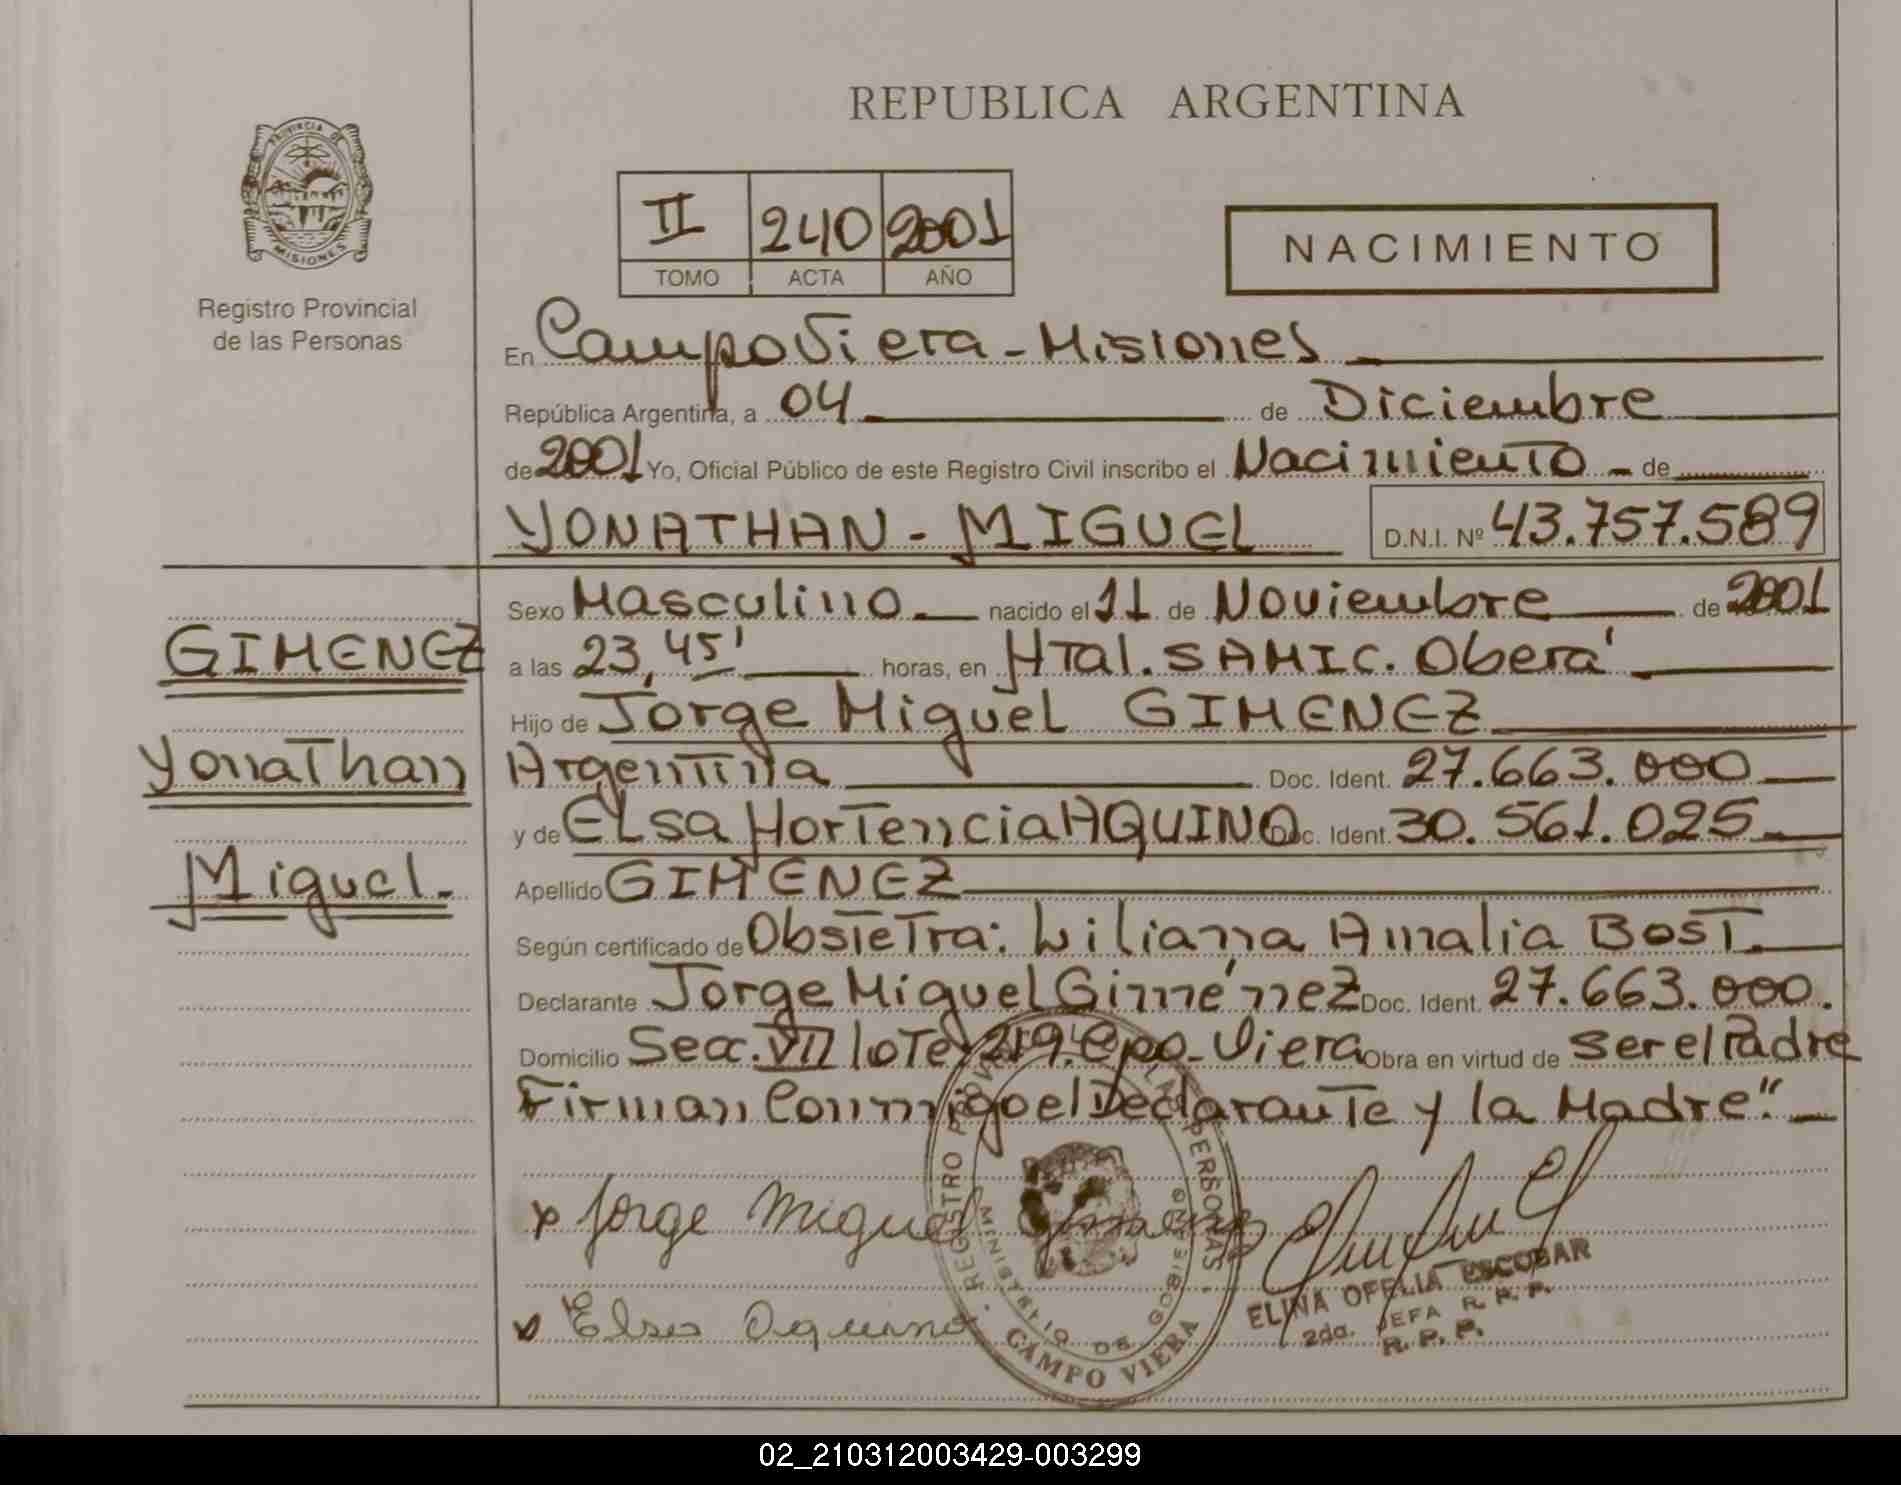 REPUBLICA ARGENTINA
PROVINCIA DE
MISIONES
Registro Provincial
de las Personas
II 240 2001
TOMO ACTA AÑO
NACIMIENTO
En Campo Viera - Misiones
República Argentina, a 04 de Diciembre
de 2001 Yo, Oficial Público de este Registro Civil inscribo el Nacimiento - de
YONATHAN - MIGUEL D.N.I. Nº 43.757.589
GIMENEZ
Yonathan
Miguel.
Sexo Masculino nacido el 11 de Noviembre de 2001
a las 23,45' horas, en HTal. SAMIC. Oberá
Hijo de Jorge Miguel GIMENEZ
Argentina Doc. Ident. 27.663.000
y de Elsa Hortencia AQUINO Doc. Ident. 30.561.025
Apellido GIMENEZ
Según certificado de Obstetra: Liliana Amalia BOST.
Declarante Jorge Miguel Giménez Doc. Ident. 27.663.000.
Domicilio Secc. VII lote 219. Cpo. Viera Obra en virtud de ser el Padre
Firman Conmigo el Declarante y la Madre".
x Jorge Miguel Gimenez
x Elsa Aquino
REGISTRO PROVINCIAL DE LAS PERSONAS
MINISTERIO DE GOBIERNO
CAMPO VIERA
ELINA OFELIA ESCOBAR
2da. JEFA R. P. P.
R. P. P.
02_210312003429-003299